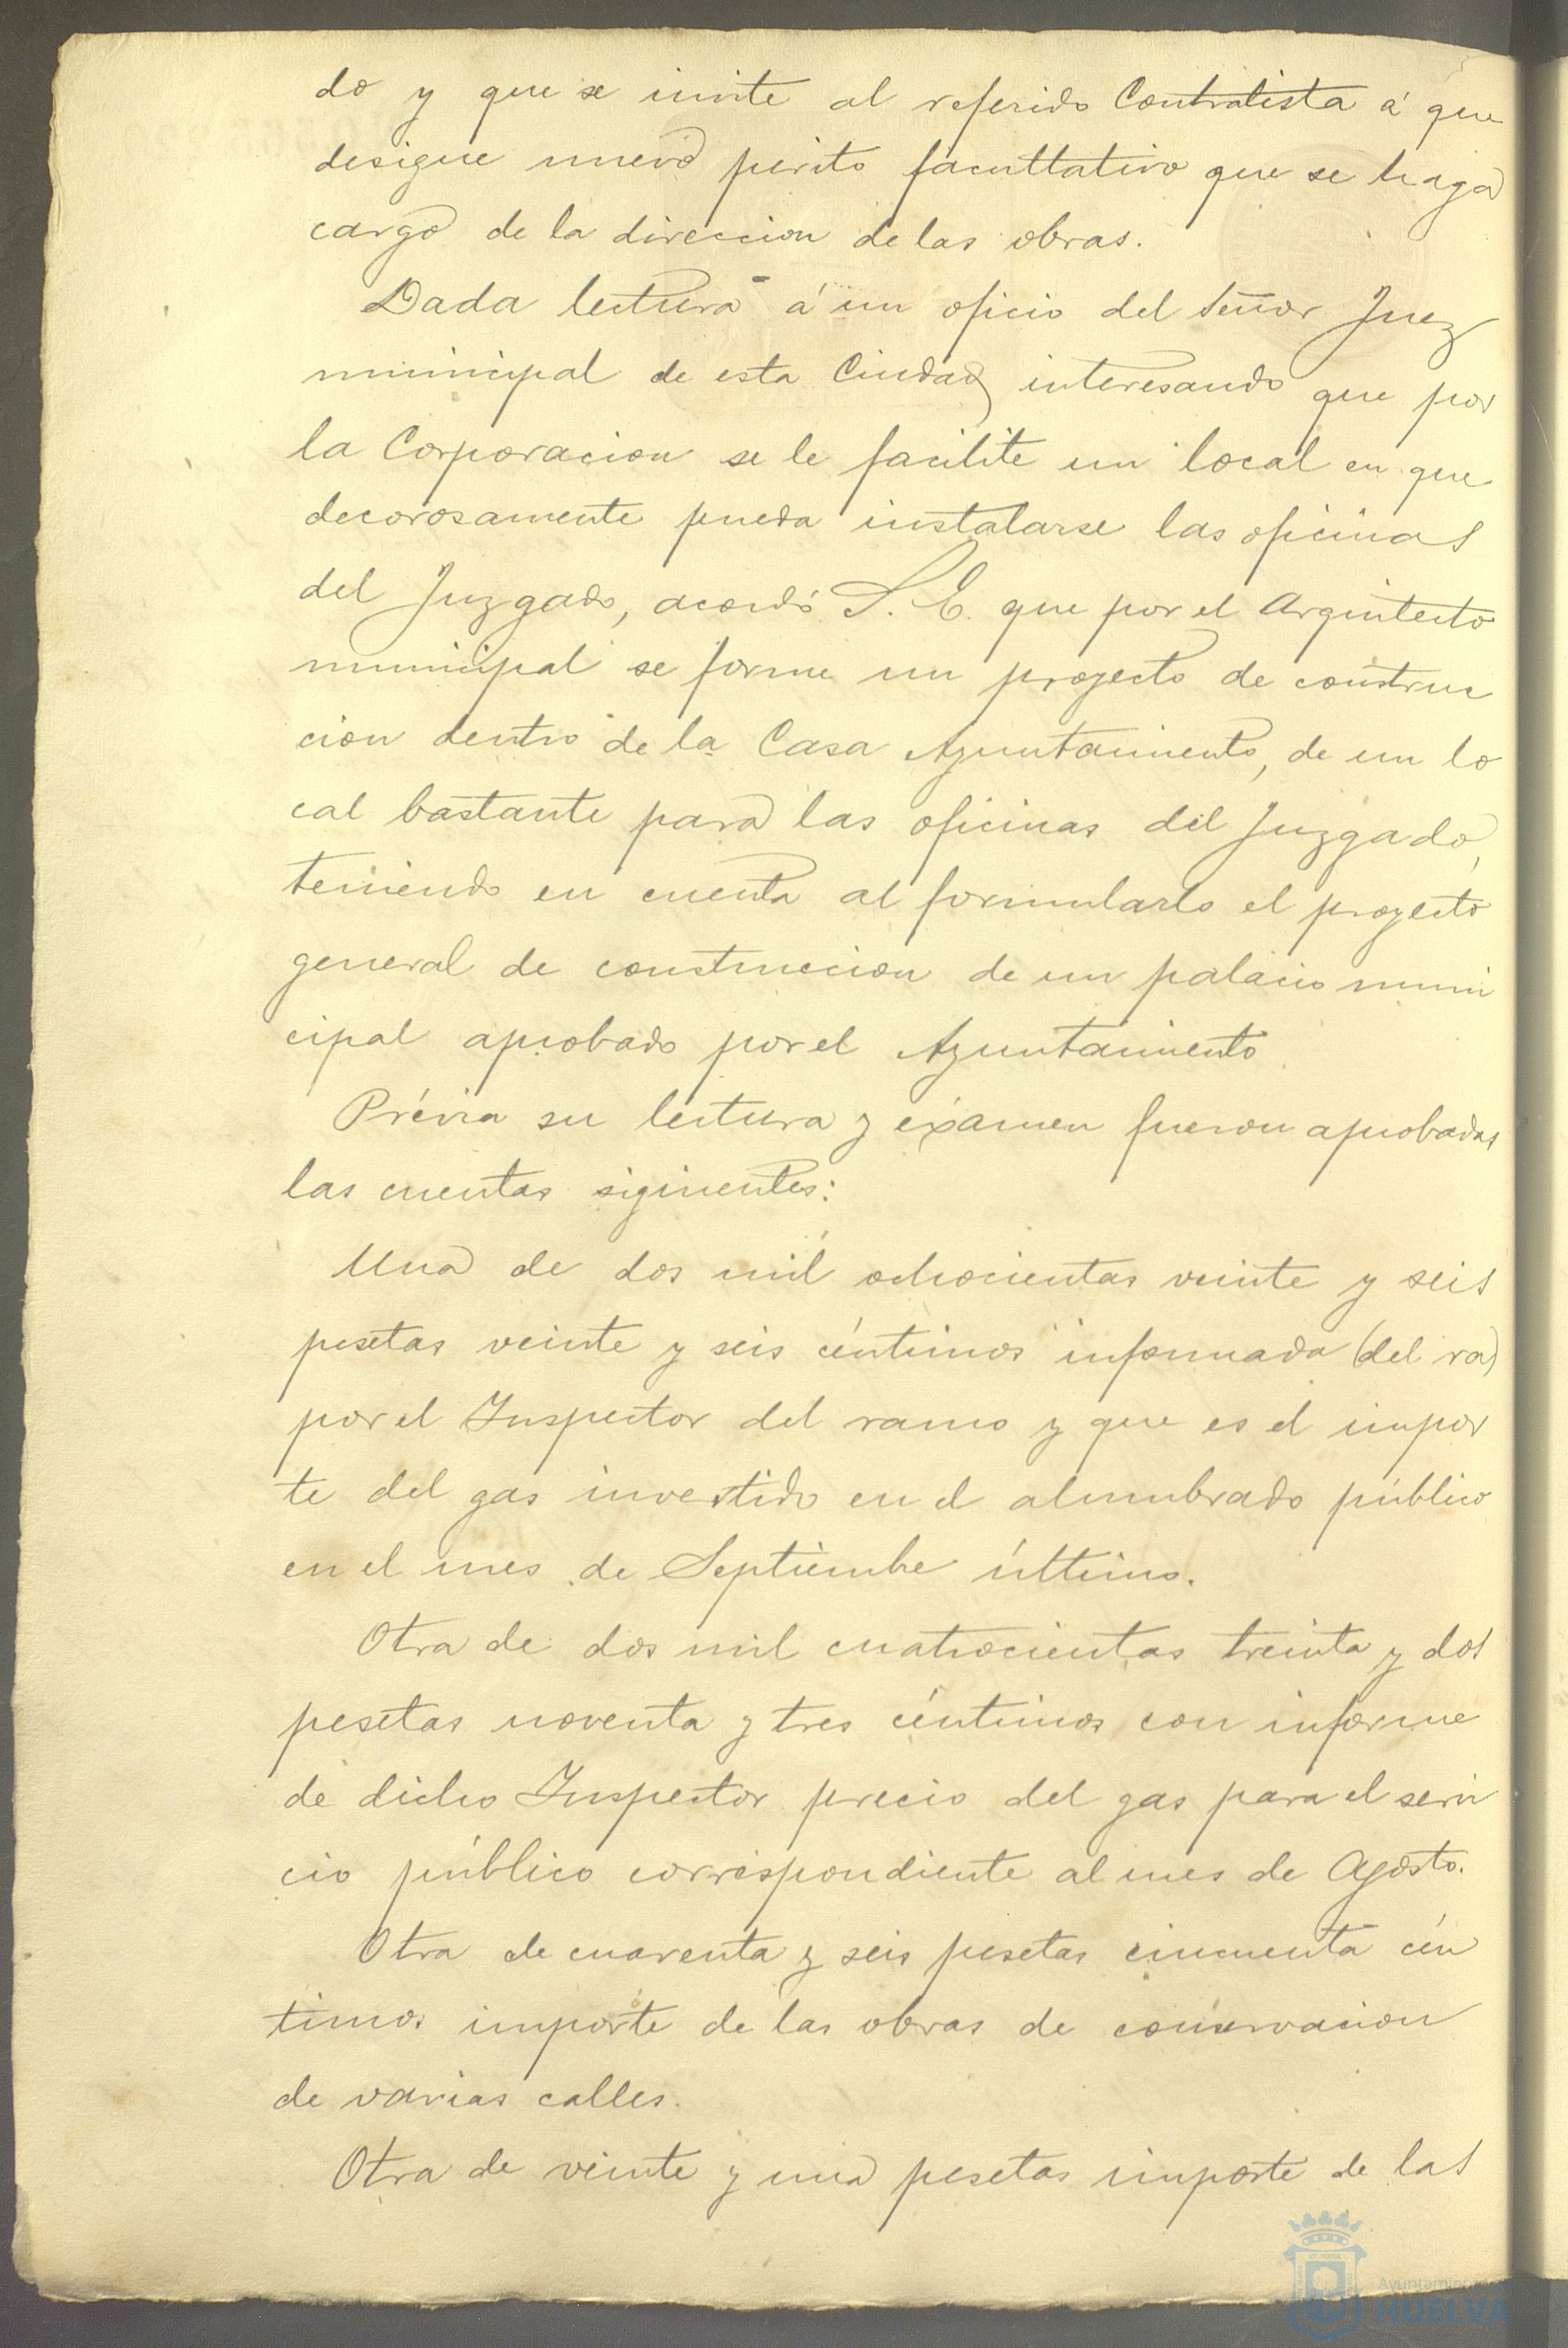 do y que se invite al referido Contratista á que
desigue nuevo perito facultativo que se haga
cargo de la direccion de las obras.
Dada lectura á un oficio del Señor Juez
municipal de esta Ciudad interesando que por
la Corporacion se le facilite un local en que
decorosamente pueda instalarse las oficinas
del Juzgado, acordó S. E. que por el Arquitecto
municipal se forme un proyecto de construc
cion dentro de la Casa Ayuntamiento, de un lo
cal bastante para las oficinas del Juzgado,
teniendo en cuenta al formularlo el proyecto
general de construccion de un palacio muni
cipal aprobado por el Ayuntamiento
Prévia su lectura y exámen fueron aprobadas
las cuentas siguientes:
Una de dos mil ochocientas veinte y seis
pesetas veinte y seis céntimos informada (del ra)
por el Inspector del ramo y que es el impor
te del gas invertido en el alumbrado público
en el mes de Septiembre último.
Otra de dos mil cuatrocientas treinta y dos
pesetas noventa y tres céntimos con informe
de dicho Inspector precio del gas para el servi
cio público correspondiente al mes de Agosto.
Otra de cuarenta y seis pesetas cincuenta cén
timos importe de las obras de conservacion
de varias calles.
Otra de veinte y una pesetas importe de las
Ayuntamiento de
HUELVA